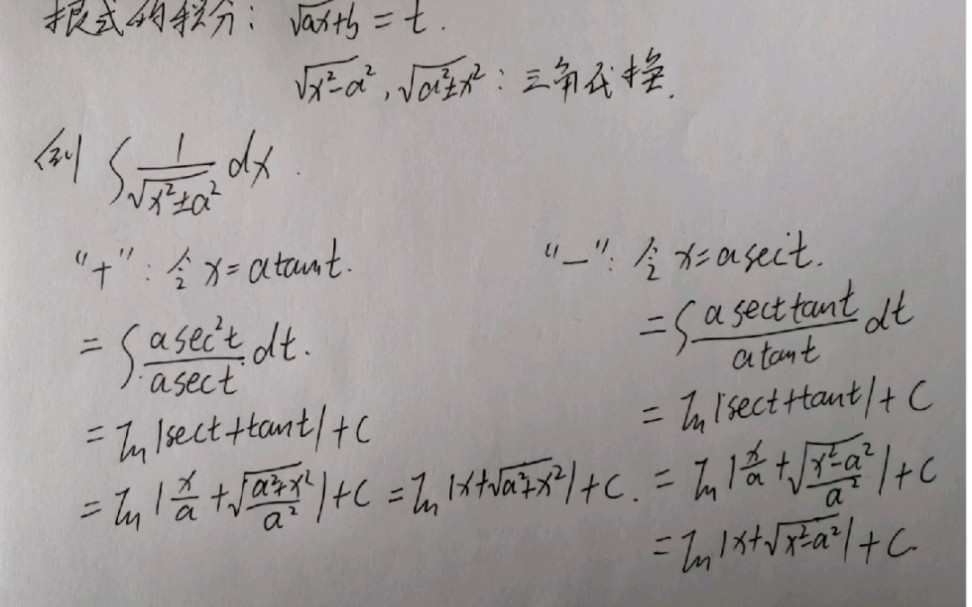 根式的积分: √(ax+b) = t.
√(x²-a²), √(a²±x²): 三角代换.
例 ∫ 1/√(x²±a²) dx.
"+": 令 x = a tant.
= ∫ (a sec²t)/(a sect) dt.
= ln|sect+tant|+C
= ln|x/a + √((a²+x²)/a²)|+C = ln|x+√(a²+x²)|+C.
"-": 令 x = a sect.
= ∫ (a sect tant)/(a tant) dt
= ln|sect+tant|+C
= ln|x/a + √((x²-a²)/a²)|+C
= ln|x+√(x²-a²)|+C.